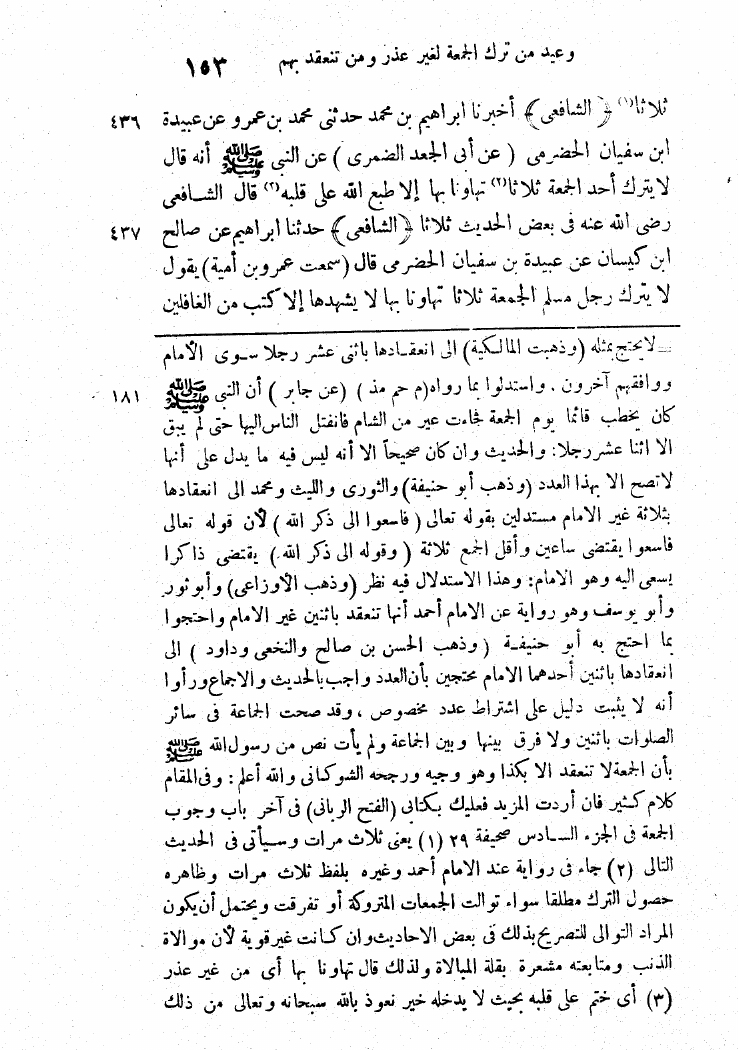 وعيد من ترك الجمعة لغير عذر ومن تنعقد بهم ١٥٣
ثلاثا(١) ﴿ الشافعى ﴾ أخبرنا ابراهيم بن محمد حدثنى محمد بن عمرو عن عبيدة ٤٣٦
ابن سفيان الحضرمى ( عن أبى الجعد الضمرى ) عن النبى ﷺ أنه قال
لا يترك أحد الجمعة ثلاثا(٢) تهاونا بها إلا طبع الله على قلبه(٣) قال الشافعى
رضى الله عنه فى بعض الحديث ثلاثا ﴿ الشافعى ﴾ حدثنا ابراهيم عن صالح ٤٣٧
ابن كيسان عن عبيدة بن سفيان الحضرمى قال (سمعت عمرو بن أمية) يقول
لا يترك رجل مسلم الجمعة ثلاثا تهاونا بها لا يشهدها إلا كتب من الغافلين
= لا يحتج بمثله (وذهبت المالكية) الى انعقادها باثنى عشر رجلا سوى الأمام
ووافقهم آخرون . واستدلوا بما رواه (م حم مذ ) (عن جابر ) أن النبى ﷺ ١٨١
كان يخطب قائما يوم الجمعة فجاءت عير من الشام فانفتل الناس اليها حتى لم يبق
الا اثنا عشر رجلا: والحديث وان كان صحيحاً الا أنه ليس فيه ما يدل على أنها
لاتصح الا بهذا العدد (وذهب أبو حنيفة) والثورى والليث ومحمد الى انعقادها
بثلاثة غير الامام مستدلين بقوله تعالى ( فاسعوا الى ذكر الله ) لأن قوله تعالى
فاسعوا يقتضى ساعين وأقل الجمع ثلاثة ( وقوله الى ذكر الله ) يقتضى ذاكرا
يسعى اليه وهو الامام: وهذا الاستدلال فيه نظر (وذهب الأوزاعى) وأبو ثور
وأبو يوسف وهو رواية عن الامام أحمد أنها تنعقد باثنين غير الامام واحتجوا
بما احتج به أبو حنيفة ( وذهب الحسن بن صالح والنخعى وداود ) الى
انعقادها باثنين أحدهما الامام محتجين بأن العدد واجب بالحديث والاجماع ورأوا
أنه لا يثبت دليل على اشتراط عدد مخصوص ، وقد صحت الجماعة فى سائر
الصلوات باثنين ولا فرق بينها وبين الجماعة ولم يأت نص من رسول الله ﷺ
بأن الجمعة لا تنعقد الا بكذا وهو وجيه ورجحه الشوكانى والله أعلم: وفى المقام
كلام كثير فان أردت المزيد فعليك بكتابى (الفتح الربانى) فى آخر باب وجوب
الجمعة فى الجزء السادس صحيفة ٢٩ (١) يعنى ثلاث مرات وسيأتى فى الحديث
التالى (٢) جاء فى رواية عند الامام أحمد وغيره بلفظ ثلاث مرات وظاهره
حصول الترك مطلقا سواء توالت الجمعات المتروكة أو تفرقت ويحتمل أن يكون
المراد التوالى للتصريح بذلك فى بعض الاحاديث وان كانت غير قوية لأن موالاة
الذنب ومتابعته مشعرة بقلة المبالاة ولذلك قال تهاونا بها أى من غير عذر
(٣) أى ختم على قلبه بحيث لا يدخله خير نعوذ بالله سبحانه وتعالى من ذلك